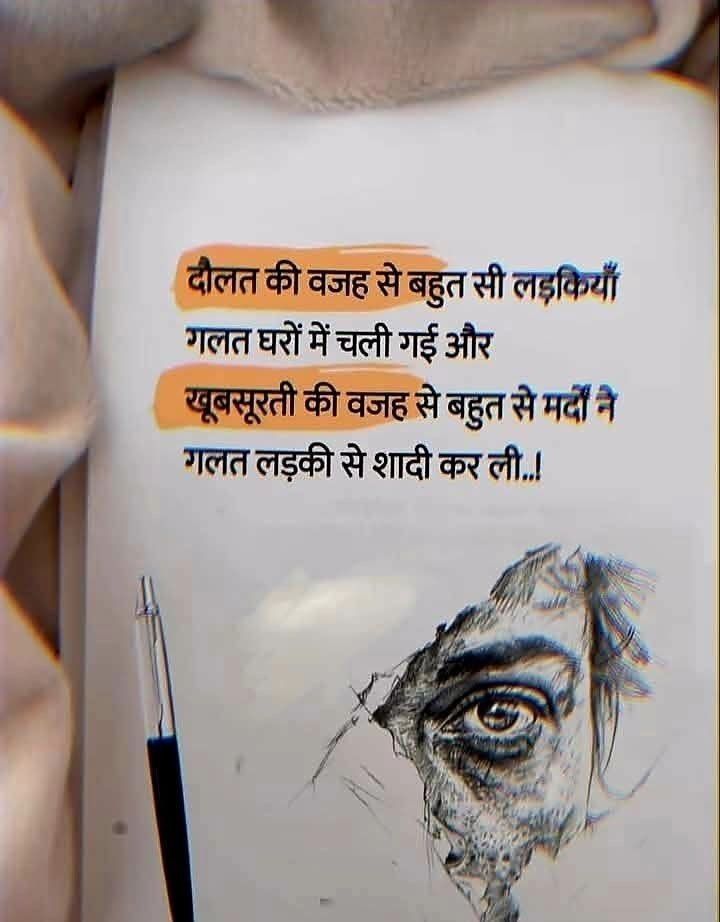 दौलत की वजह से बहुत सी लड़कियाँ
गलत घरों में चली गई और
खूबसूरती की वजह से बहुत से मर्दों ने
गलत लड़की से शादी कर ली..!